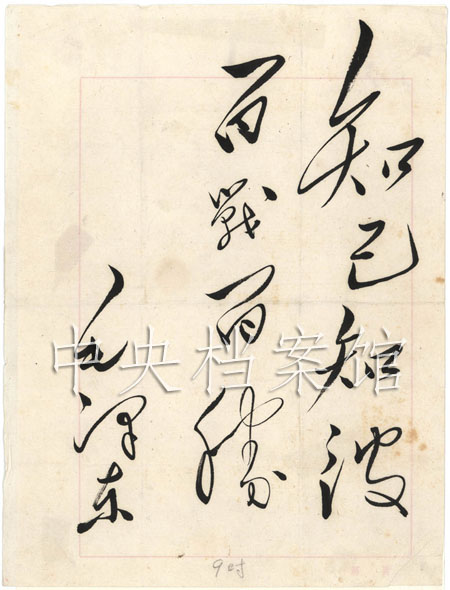 知己知彼
百戰百勝
毛泽东
中央档案馆
9时